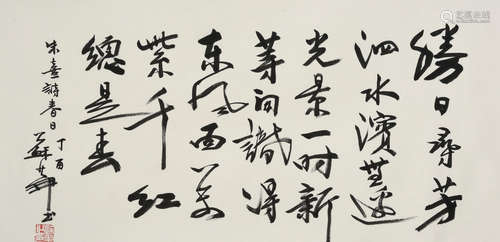 勝日尋芳
泗水濱無邊
光景一时新
等闲識得
东风面万
紫千红
總是春
朱熹詩春日 丁酉
书